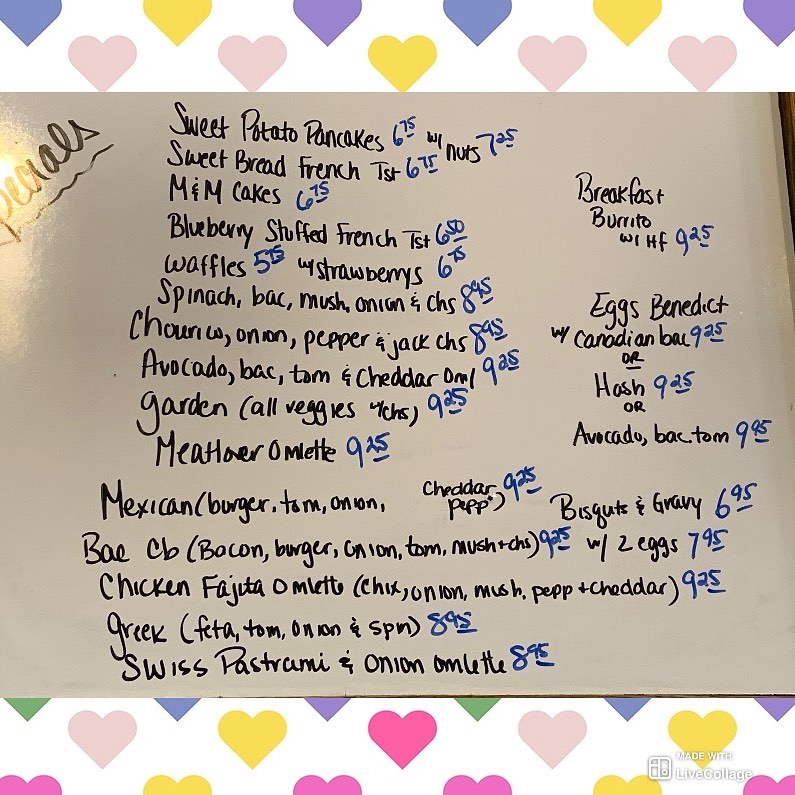 Specials
Sweet Potato Pancakes 6 75 w/ nuts 7 25
Sweet Bread French Tst 6 75
M&M Cakes 6 75
Blueberry Stuffed French Tst 6 50
Waffles 5 75 w/strawberrys 6 75
Spinach, bac, mush, onion & chs 8 95
Chourico, onion, pepper & jack chs 8 95
Avocado, bac, tom & Cheddar Oml 9 25
Garden (all veggies w/chs) 9 25
Meatlover Omlette 9 25
Mexican (burger, tom, onion, Cheddar, pepp) 9 25
Bac Cb (Bacon, burger, onion, tom, mush+chs) 9 25
Chicken Fajita Omlette (chix, onion, mush, pepp + cheddar) 9 25
Greek (feta, tom, onion & spin) 8 95
Swiss Pastrami & Onion omlette 8 95
Breakfast
Burrito
w/ HF 9 25
Eggs Benedict
w/ Canadian bac 9 25
OR
Hash 9 25
OR
Avocado, bac. tom 9 95
Bisquts & Gravy 6 95
w/ 2 eggs 7 95
MADE WITH
LiveCollage